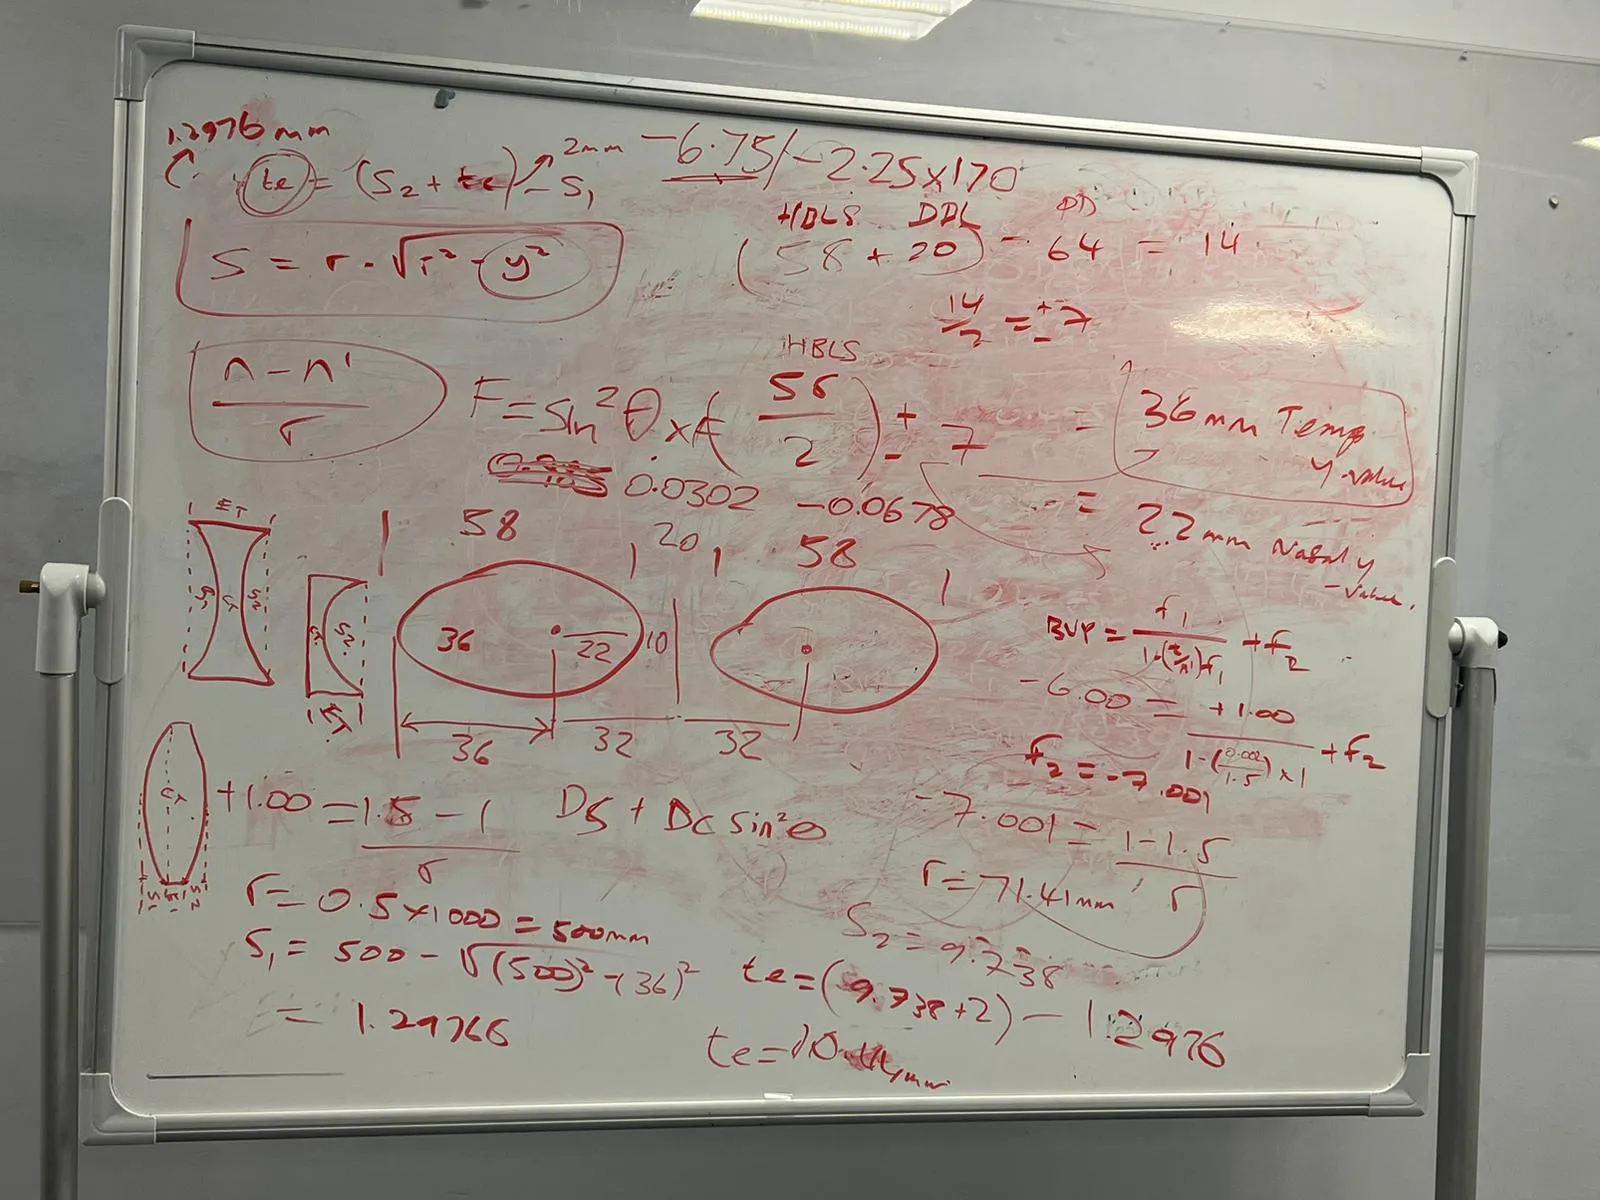 1.2976mm
te = (S₂ + tc) - S₁
2mm
-6.75/-2.25x170
HBLS DBL PD
(58 + 20) - 64 = 14
14/2 = ±7
S = r - √r² - y²
n - n' / r
HBLS
F = Sin²θ x F (58/2) ± 7 = 36mm Temp y value
0.0302 -0.0678
= 22mm Nasal y - value.
ET
S₁ CT S₂
58 20 58
S₂
36 22 10
36 32 32
BVP = f₁ / 1-(t/n')f₁ + f₂
-6.00 = +1.00 / 1-(0.002/1.5) x 1 + f₂
f₂ = -7.001
-7.001 = 1-1.5 / r
r = 71.41mm
S₂ = 9.738
CT
+1.00 = 1.5 - 1 / r
DS + DC Sin²θ
r = 0.5 x 1000 = 500mm
S₁ = 500 - √(500)² - (36)²
= 1.29766
te = (9.738+2) - 1.2976
te = 10.44mm